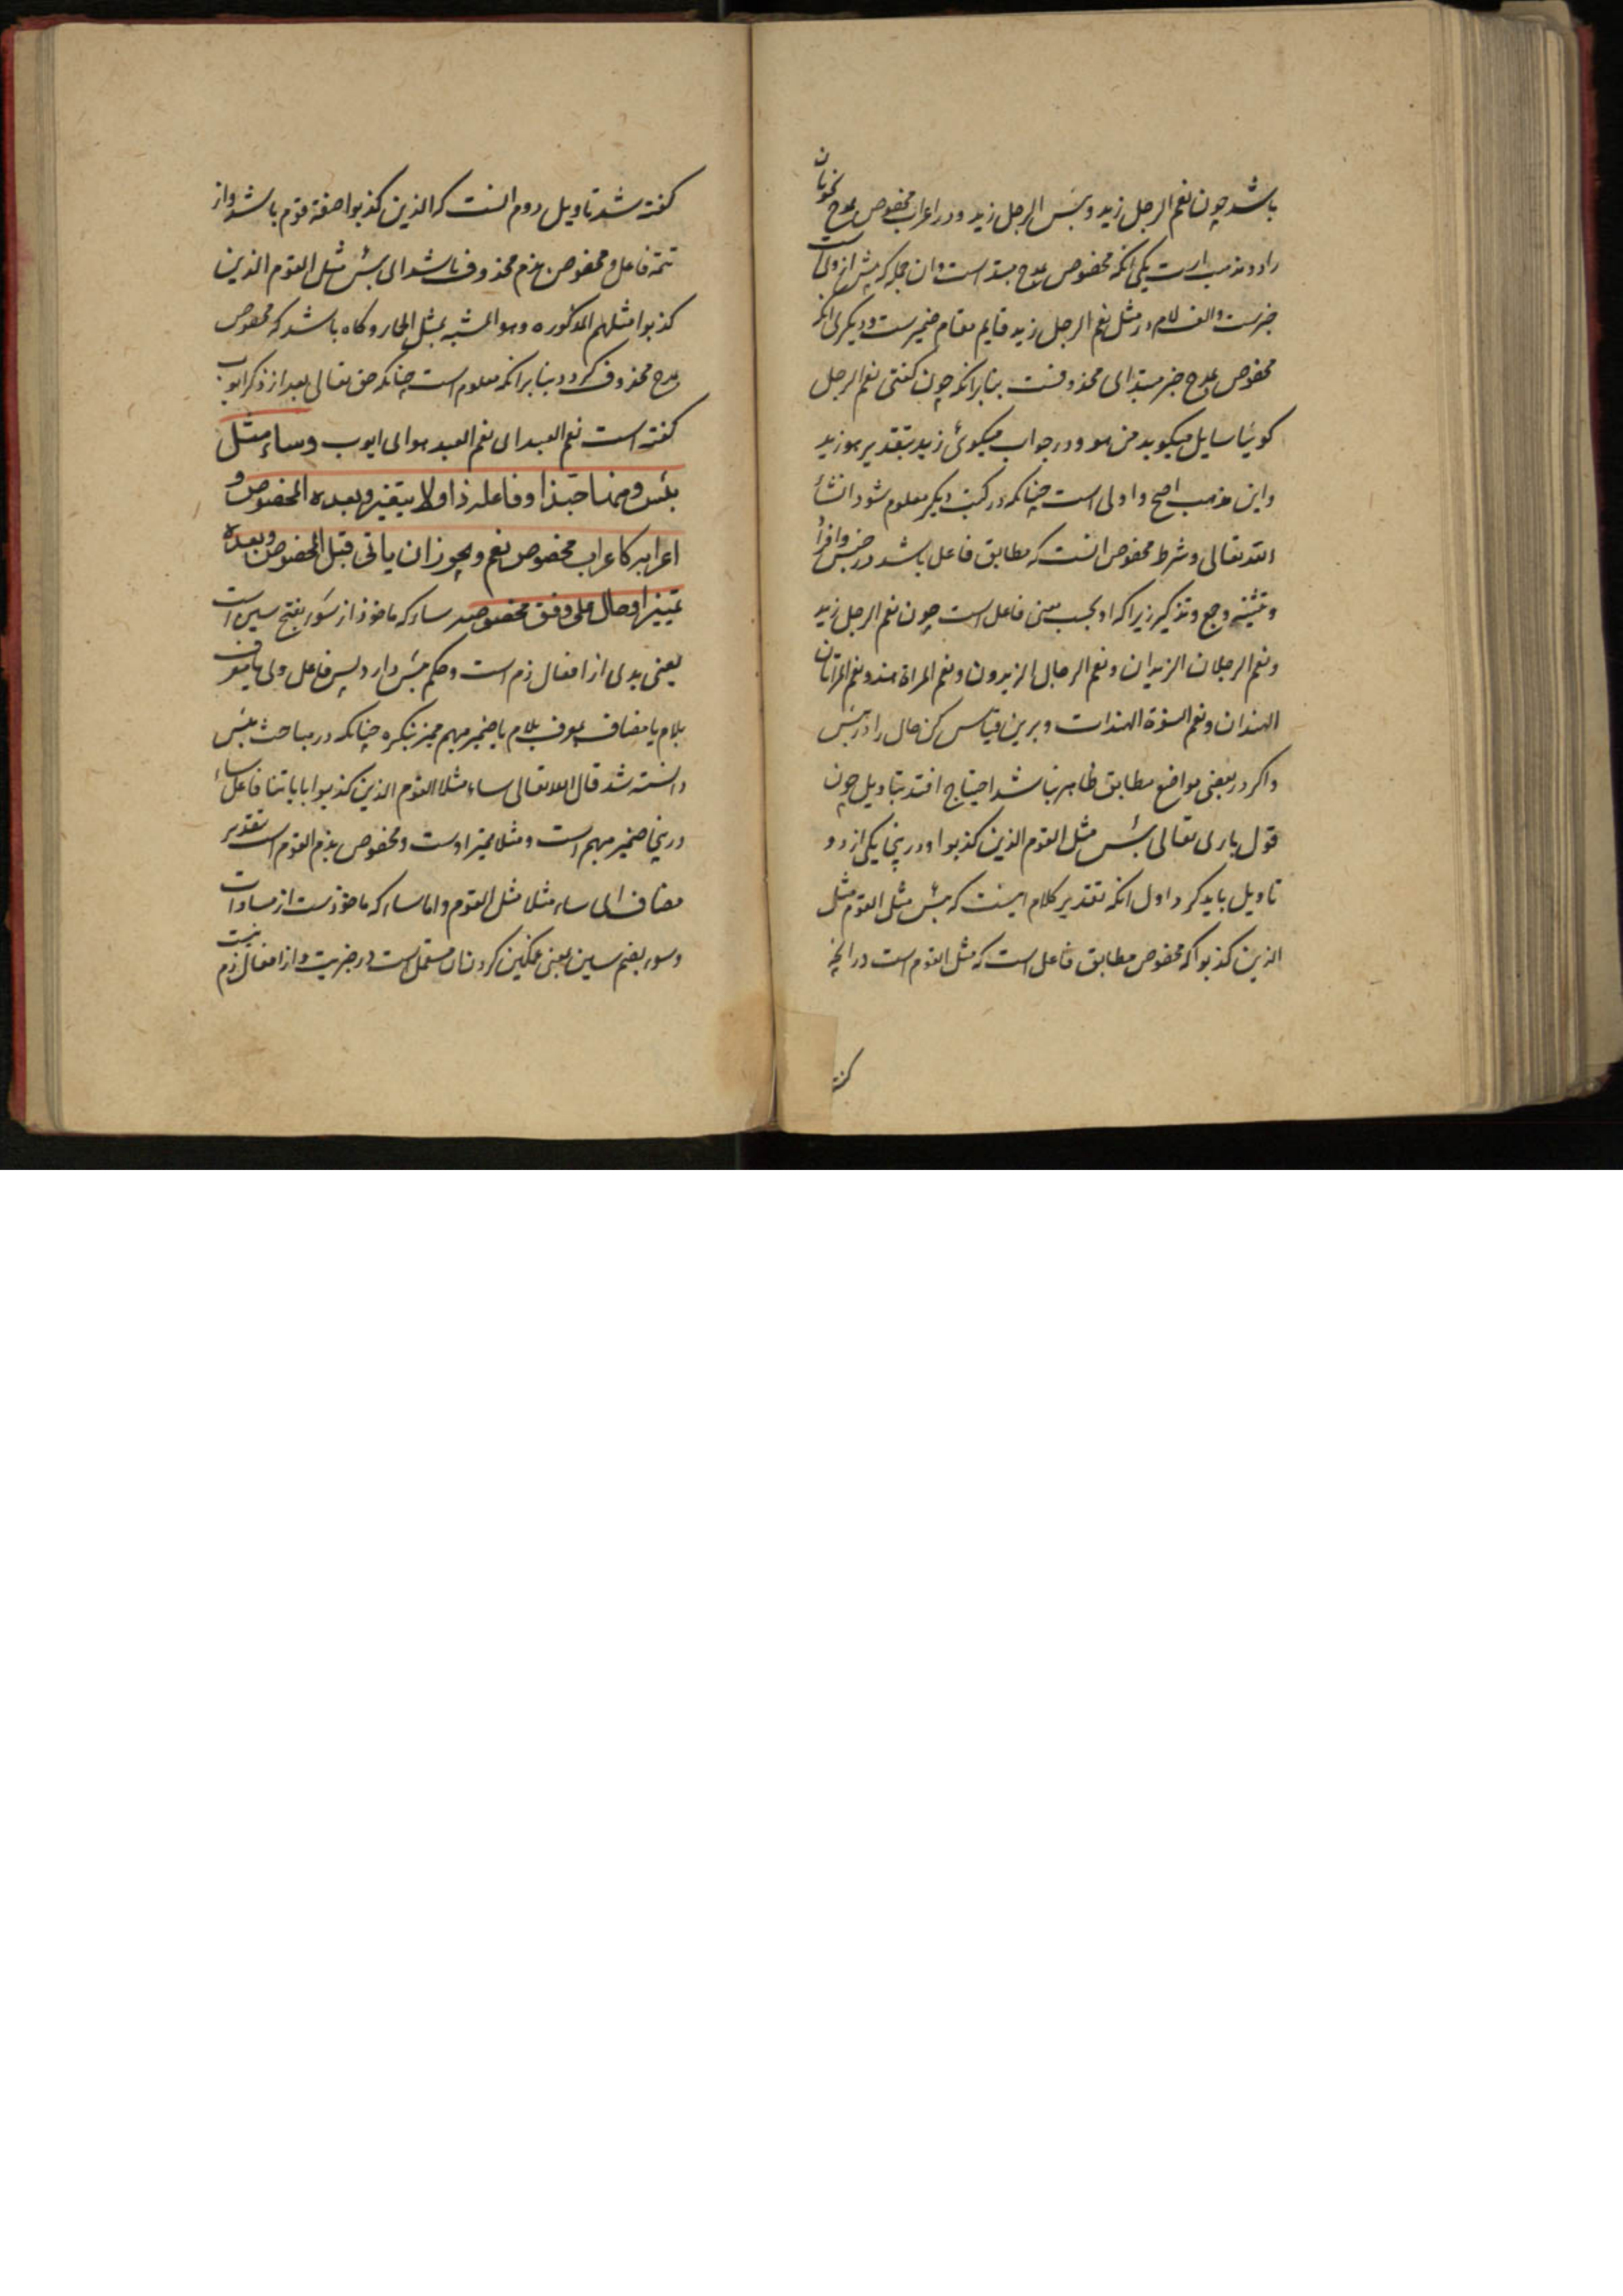 باشد چون نعم الرجل زید و بئس الرجل زید و در اعراب مخصوص بمدح نحویان
را دو مذهب است یکی انکه مخصوص بمدح مبتدا است و ان جمله که پیش از ولیست
خبرست و الف لام در مثل نعم الرجل زید قایم مقام ضمیرست و دیکری انکه
مخصوص بمدح خبر مبتدای محذوفست بنا برانکه چون کفتی نعم الرجل
کوئیا سایل میکوید من هو و در جواب میکوئی زید بتقدیر هو زید
و این مذهب اصح و اولی است چنانکه در کتب دیکر معلوم شود انشاء
الله تعالی و شرط مخصوص انست که مطابق فاعل باشد در جنس و افراد
و تثنیه و جمع و تذکیر زیرا که او بحسب معنی فاعل است چون نعم الرجل زید
و نعم الرجلان الزیدان و نعم الرجال الزیدون و نعم المراة هند و نعم المراتان
الهندان و نعم النسوة الهندات و برین قیاس کن حال را در بئس
و اکر در بعضی مواضع مطابق ظاهر نباشد احتیاج افتد بتاویل چون
قول باری تعالی بئس مثل القوم الذین کذبوا و درینجا یکی از دو
تاویل باید کرد اول انکه تقدیر کلام اینست که بئس مثل القوم مثل
الذین کذبوا که مخصوص مطابق فاعل است که مثل القوم است در انچه
کفته
کفته شد تاویل دوم انست که الذین کذبوا صفة قوم باشد و از
تتمه فاعل و مخصوص بذم محذوف باشد ای بئس مثل القوم الذین
کذبوا مثلهم المذکوره و هو المشبه بمثل الحمار و کاه باشد که مخصوص
بمدح محذوف کردد بنا برانکه معلوم است چنانکه حق تعالی بعد از ذکر ایوب
کفته است نعم العبد ای نعم العبد هو ای ایوب وساء مثل
بئس ومنها حبذا وفاعله ذا ولا یتغیر وبعده المخصوص و
اعرابه کاعراب مخصوص نعم ویجوز ان یاتی قبل المخصوص وبعده
تمییز او حال علی وفق مخصوصه ساء که ماخوذ از سوء بفتح سین است
یعنی بدی از افعال ذم است و حکم بئس دارد پس فاعل وی یا معرف
بلام یا مضاف بمعرف بلام یا ضمیر مبهم ممیز بنکره چنانکه در مباحث بئس
دانسته شد قال الله تعالی ساء مثلا القوم الذین کذبوا بایاتنا فاعل ساء
درینجا ضمیر مبهم است و مثلا ممیز اوست و مخصوص بذم القوم است بتقدیر
مضاف ای ساء مثلا مثل القوم و اما ساء که ماخوذست از مساوات
و سوء بضم سین بمعنی غمکین کردن ان مستعمل است در خبریت و از افعال ذم نیست